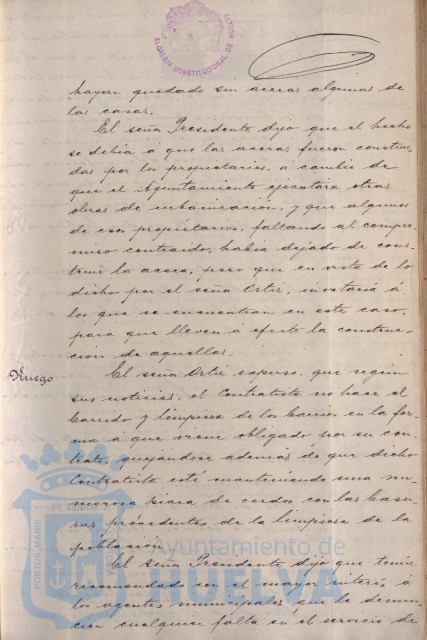 ALCALDIA CONSTITUCIONAL DE HUELVA
hayan quedado sin aceras algunas de
las casas.
El señor Presidente dijo que el hecho
se debia á que las aceras fueron construi-
das por los propietarios, a cambio de
que el Ayuntamiento ejecutara otras
obras de urbanización, y que algunos
de esos propietarios, faltando al compro-
miso contraido, habia dejado de cons-
truir la acera, pero que en vista de lo
dicho por el señor Ortiz, invitaria á
los que se encuentran en este caso,
para que lleven á efecto la construc-
ción de aquellas.
Ruego
El señor Ortiz expuso, que según
sus noticias, el Contratista no hase el
barrido y limpiesa de los barrios en la for-
ma a que viene obligado por su con-
trato, quejándose además de que dicho
Contratista esté manteniendo una nu-
merosa piara de cerdos con las basu-
ras procedentes de la limpiesa de la
población.
El señor Presidente dijo que tenia
recomendado con el mayor interés á
los agentes municipales que le denun-
cien cualquier falta en el servicio de
PORTUS MARIS
Ayuntamiento de
HUELVA